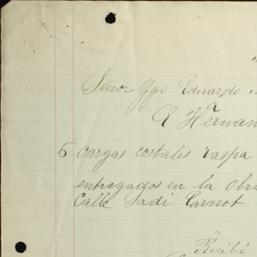 Señor Ygo Eduardo
A Hernan
6 cargas costales raspa
entregados en la obra
Calle Sadi Carnot
Recibí